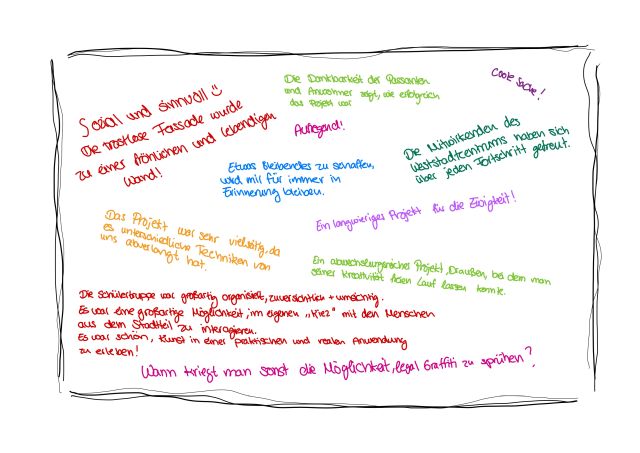 Sozial und sinnvoll
Die trostlose Fassade wurde
zu einer fröhlichen und lebendigen
Wand!
Die Dankbarkeit der Passanten
und Anwohner zeigt, wie erfolgreich
das Projekt war
Coole Sache!
Aufregend!
Die Mitwirkenden des
Weststadtcentrums haben sich
über jeden Fortschritt gefreut.
Etwas Bleibendes zu schaffen,
wird mir für immer in
Erinnerung bleiben.
Ein langwieriges Projekt für die Ewigkeit!
Das Projekt war sehr vielseitig, da
es unterschiedliche Techniken von
uns abverlangt hat.
Ein abwechslungsreiches Projekt, Draußen, bei dem man
seiner Kreativität freien Lauf lassen konnte.
Die Schülertruppe war großartig organisiert, zuversichtlich + umsichtig.
Es war eine großartige Möglichkeit, im eigenen „Kiez" mit den Menschen
aus dem Stadtteil zu interagieren.
Es war schön, Kunst in einer praktischen und realen Anwendung
zu erleben!
Wann kriegt man sonst die Möglichkeit, legal Graffiti zu sprühen?